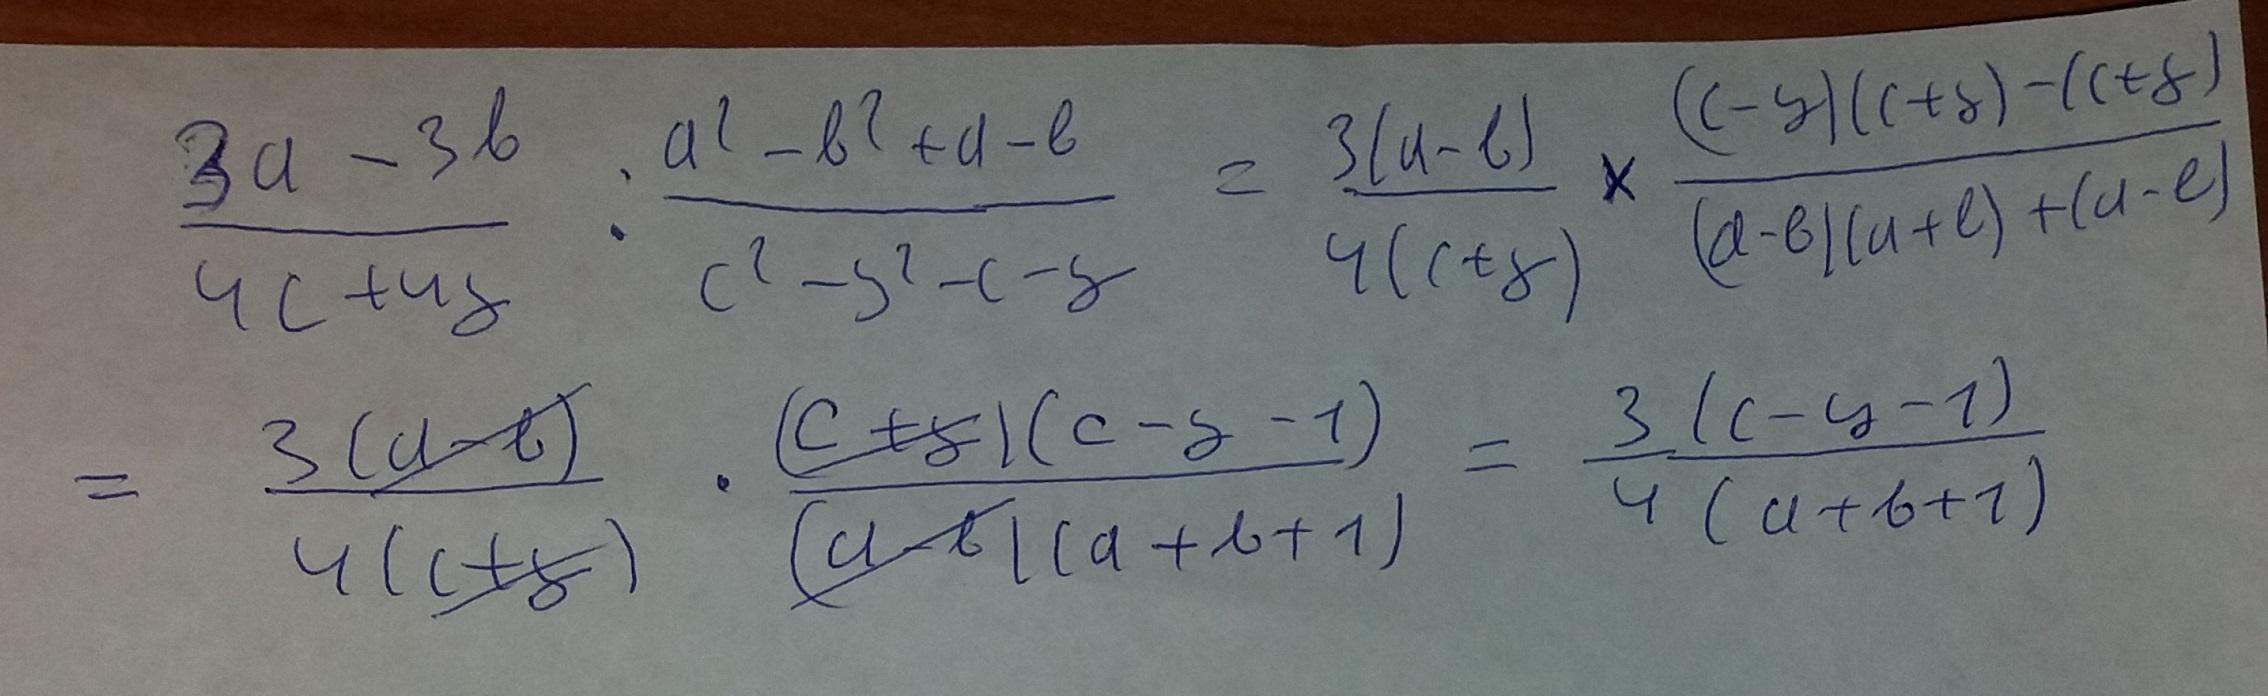 (3a - 3b)/(4c + 4y) : (a² - b² + a - b)/(c² - y² - c - y) = 3(a - b)/4(c + y) × ((c - y)(c + y) - (c + y))/((a - b)(a + b) + (a - b))
= 3(a - b)/4(c + y) · (c + y)(c - y - 1)/(a - b)(a + b + 1) = 3(c - y - 1)/4(a + b + 1)